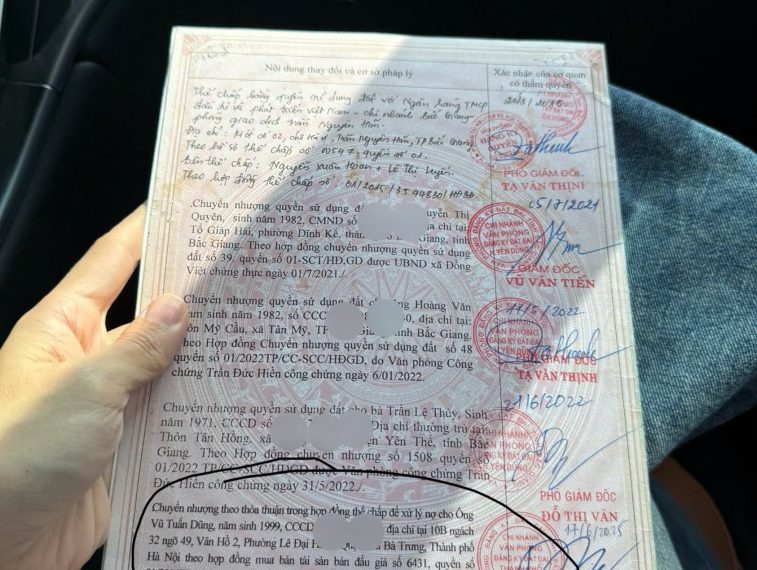 Nội dung thay đổi và cơ sở pháp lý
Xác nhận của cơ quan
có thẩm quyền
Thế chấp bằng quyền sử dụng đất với Ngân hàng TMCP
đầu tư và phát triển Việt Nam - chi nhánh Bắc Giang -
phòng giao dịch Trần Nguyên Hãn.
Địa chỉ: Trần Nguyên Hãn, TP Bắc Giang.
Theo hồ sơ thế chấp số 00547, quyển số 01.
Bên thế chấp: Nguyễn Xuân Hoan + Lê Thị Uyên.
Theo hợp đồng thế chấp số: 01/2015/3594830/HĐBĐ
PHÓ GIÁM ĐỐC
TẠ VĂN THỊNH
Chuyển nhượng quyền sử dụng đất
uyễn Thị
Quyên, sinh năm 1982, CMND số
địa chỉ tại
Tổ Giáp Hải, phường Dĩnh Kế, thàn
Giang, tỉnh
Bắc Giang. Theo hợp đồng chuyển nhượng quyền sử dụng
đất số 39, quyển số 01-SCT/HĐ.GD được UBND xã Đồng
Việt chứng thực ngày 01/7/2021./.
05/7/2021
CHI NHÁNH
VĂN PHÒNG
ĐĂNG KÝ ĐẤT ĐAI
H.YÊN DŨNG
GIÁM ĐỐC
VŨ VĂN TIẾN
Chuyển nhượng quyền sử dụng đất
Hoàng Văn
am sinh năm 1982, số CCC
0, địa chỉ tại
ôn Mỹ Cầu, xã Tân Mỹ, TP
Gia
h Bắc Giang.
theo Hợp đồng Chuyển nhượng quyền sử dụng đất số 48
quyển số 01/2022TP/CC-SCC/HĐGD, do Văn phòng Công
chứng Trần Đức Hiền công chứng ngày 6/01/2022.
17/5/2022
CHI NHÁNH
VĂN PHÒNG
ĐĂNG KÝ ĐẤT ĐAI
YÊN DŨNG
PHÓ GIÁM ĐỐC
TẠ VĂN THỊNH
Chuyển nhượng quyền sử dụng đất cho bà Trần Lệ Thủy, Sinh
năm 1971, CCCD số
Địa chỉ thường trú tại:
Thôn Tân Hồng, xã
ện Yên Thế, tỉnh Bắc
Giang. Theo Hợp đồng chuyển nhượng quyền số 1508 quyển số
01/2022 TP/CC-SCC/HĐGD được Văn phòng công chứng Trần
Đức Hiền công chứng ngày 31/5/2022./.
21/6/2022
CHI NHÁNH
VĂN PHÒNG
ĐĂNG KÝ ĐẤT ĐAI
H.YÊN DŨNG
PHÓ GIÁM ĐỐC
ĐỖ THỊ VÂN
Chuyển nhượng theo thỏa thuận trong hợp đồng thế chấp để xử lý nợ cho Ông
Vũ Tuấn Dũng, năm sinh 1999, CCCD
địa chỉ tại 10B ngách
32 ngõ 49, Vân Hồ 2, Phường Lê Đại H
Bà Trưng, Thành phố
Hà Nội theo hợp đồng mua bán tài sản bán đấu giá số 6431, quyển số
17/6/2025
CHI NHÁNH
VĂN PHÒNG